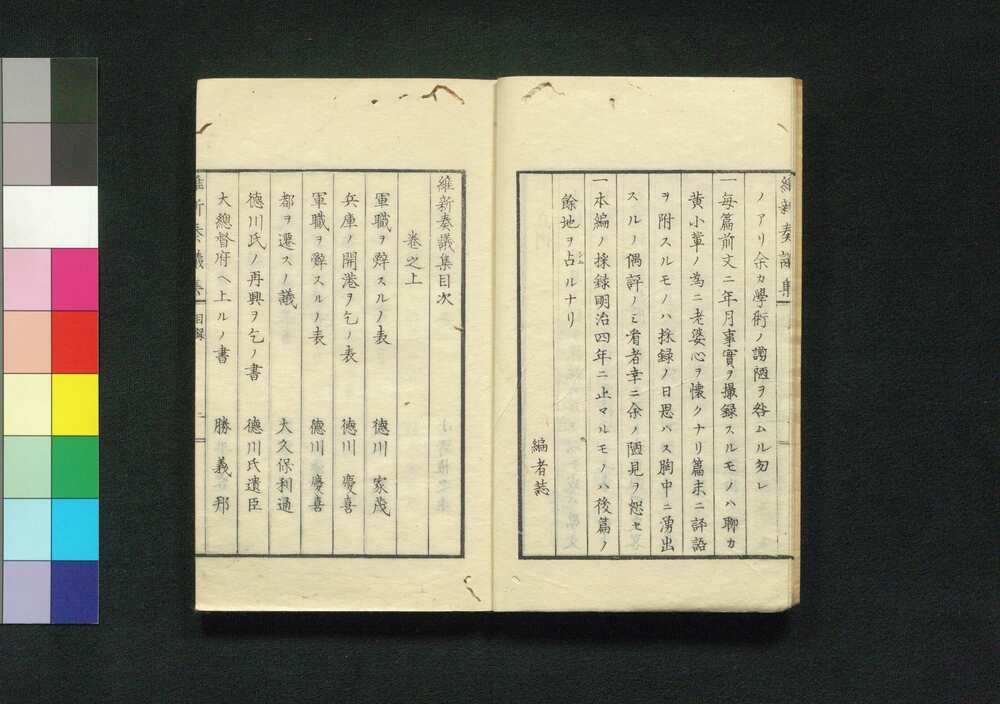 維新奏議集
ノアリ余カ學術ノ謭陋ヲ咎ムル勿レ
一毎篇前文ニ年月事實ヲ撮録スルモノハ聊カ
黄小輩ノ為ニ老婆心ヲ懐クナリ篇末ニ評語
ヲ附スルモノハ採録ノ日思ハス胸中ニ湧出
スルノ偶評ノミ看者幸ニ余ノ陋見ヲ恕セヨ
一本編ノ採録明治四年ニ止マルモノハ後篇ノ
餘地ヲ占シムルナリ
編者誌
維新奏議集目次
卷之上
軍職ヲ辤スルノ表 德川家茂
兵庫ノ開港ヲ乞ノ表 德川慶喜
軍職ヲ辤スルノ表 德川慶喜
都ヲ遷スノ議 大久保利通
德川氏ノ再興ヲ乞ノ書 德川氏遺臣
大總督府ヘ上ルノ書 勝義邦
維新奏議集 目錄 一